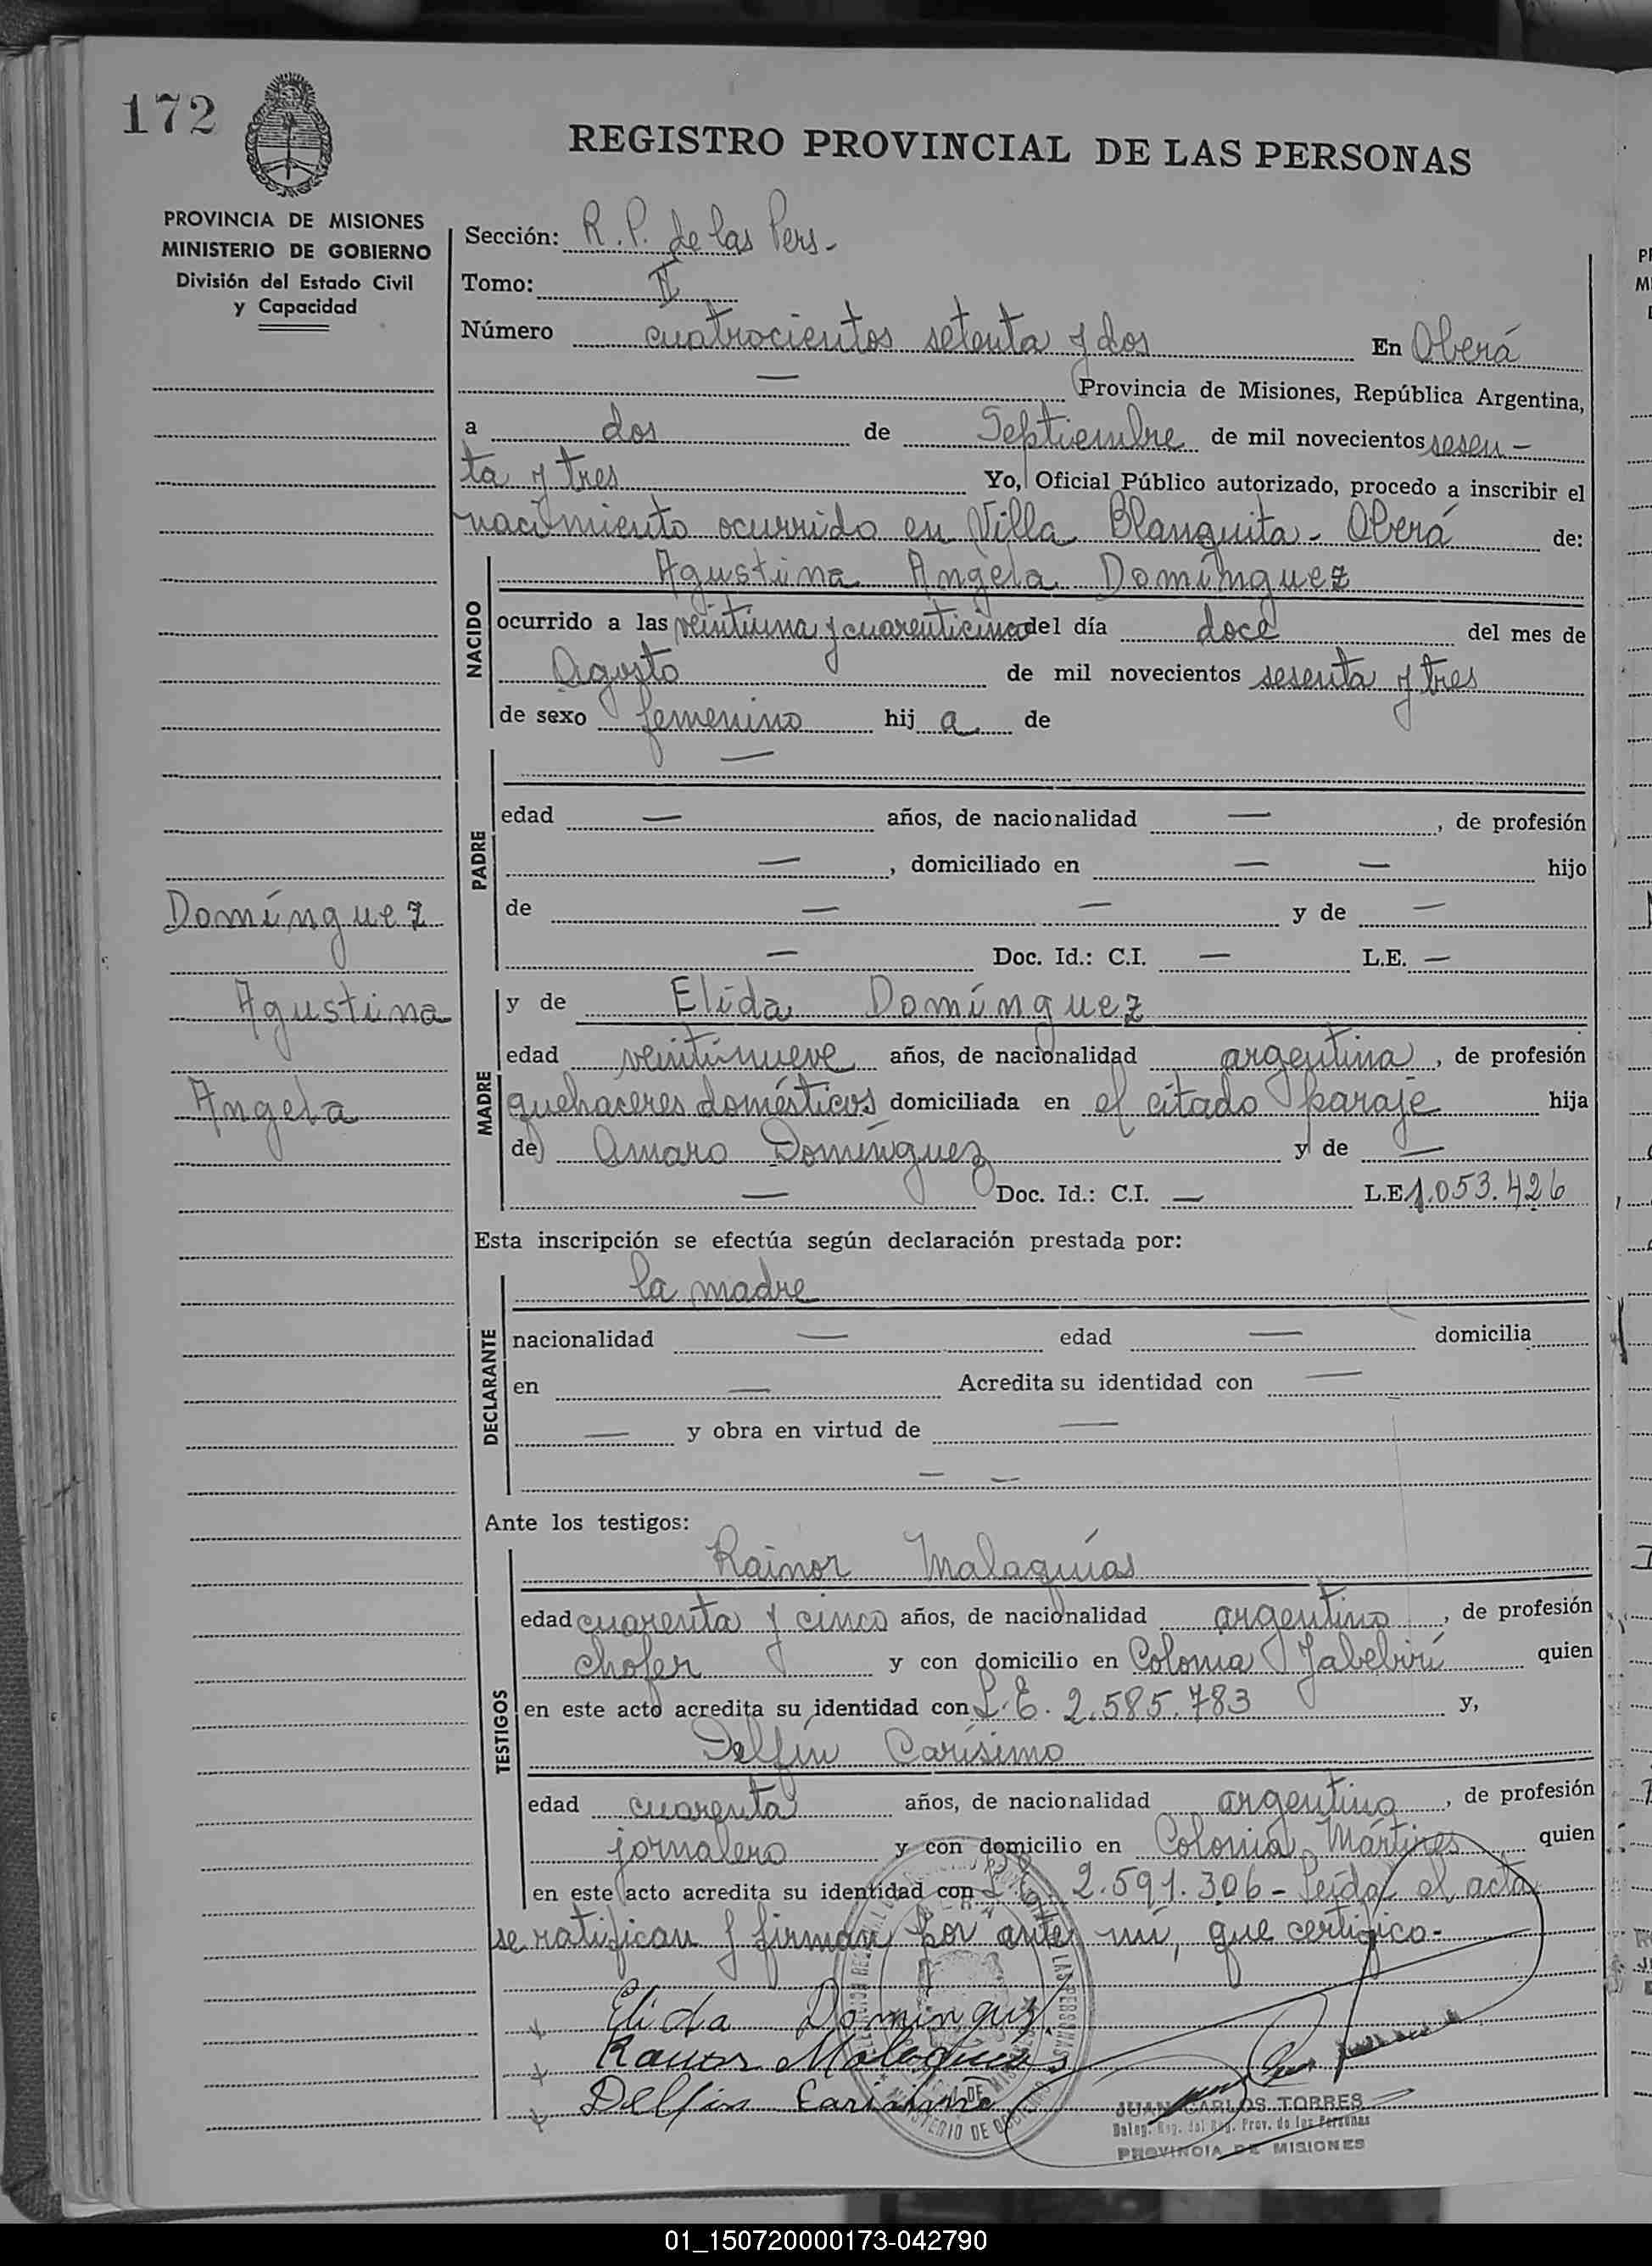 172
REGISTRO PROVINCIAL DE LAS PERSONAS
PROVINCIA DE MISIONES
MINISTERIO DE GOBIERNO
División del Estado Civil
y Capacidad
Sección: R.P. de las Pers-
Tomo: II
Número cuatrocientos setenta y dos En Oberá
— Provincia de Misiones, República Argentina,
a dos de Septiembre de mil novecientos sesen-
ta y tres Yo, Oficial Público autorizado, procedo a inscribir el
nacimiento ocurrido en Villa Blanquita - Oberá de:
NACIDO
Agustina Angela Domínguez
ocurrido a las veintiuna y cuarenticinco del día doce del mes de
Agosto de mil novecientos sesenta y tres
de sexo femenino hij a de
PADRE
—
edad — años, de nacionalidad — , de profesión
— , domiciliado en — — hijo
de — — y de —
— Doc. Id.: C.I. — L.E. —
Domínguez
Agustina
Angela
MADRE
y de Elida Domínguez
edad veintinueve años, de nacionalidad argentina , de profesión
quehaceres domésticos domiciliada en el citado paraje hija
de Amaro Domínguez y de —
— Doc. Id.: C.I. — L.E 1.053.426
Esta inscripción se efectúa según declaración prestada por:
DECLARANTE
la madre
nacionalidad — edad — domicilia
en — Acredita su identidad con —
— y obra en virtud de —
— —
Ante los testigos:
TESTIGOS
Rainor Malaquías
edad cuarenta y cinco años, de nacionalidad argentino , de profesión
chofer y con domicilio en Colonia Yabebirí quien
en este acto acredita su identidad con L.E. 2.585.783 y,
Delfin Carísimo
edad cuarenta años, de nacionalidad argentino , de profesión
jornalero y con domicilio en Colonia Mártires quien
en este acto acredita su identidad con L.E. 2.591.306 - Leída el acta
se ratifican y firman por ante mí, que certifico-
Elida Dominguz
Rainor Malaquias
Delfin Carisimo
JUAN CARLOS TORRES
Deleg. Reg. del Reg. Prov. de las Personas
PROVINCIA DE MISIONES
01_150720000173-042790